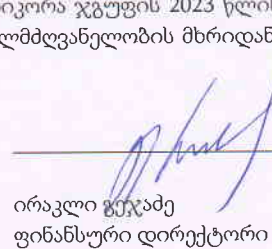 იკორა ჯგუფის 2023 წლის
ლმძღვანელობის მხრიდან
ირაკლი გეჯაძე
ფინანსური დირექტორი